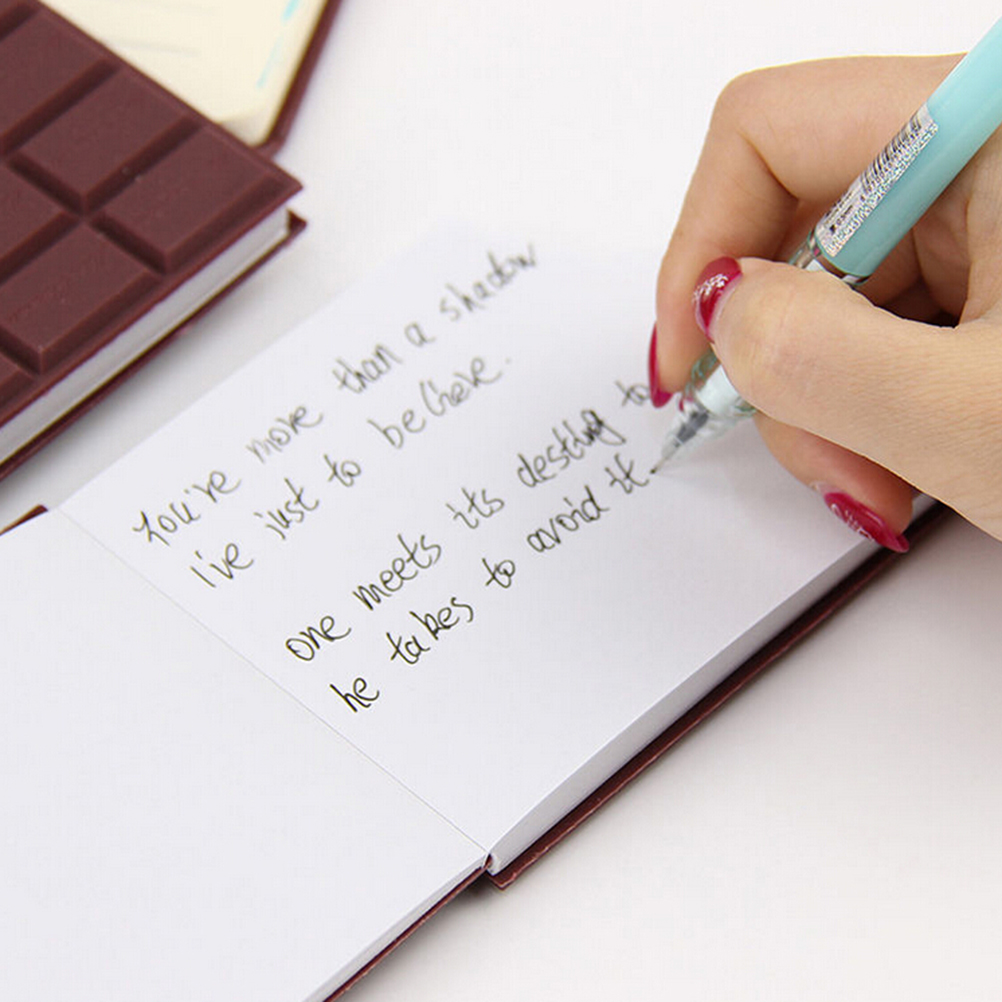 You're more than a shadow
I've just to believe.
one meets its destiny to
he takes to avoid it